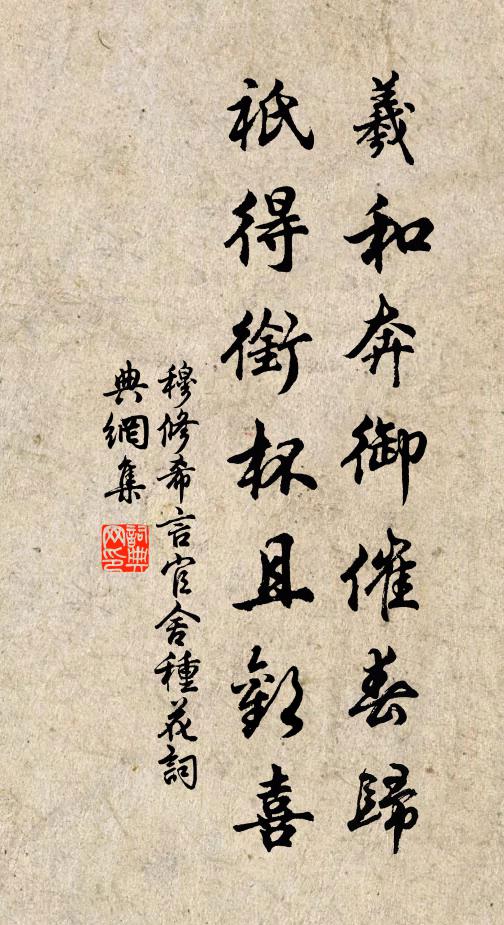 羲和奔御催春歸
祇得銜杯且歡喜
穆修希言官舍種花詞
典網集
詞典
网印